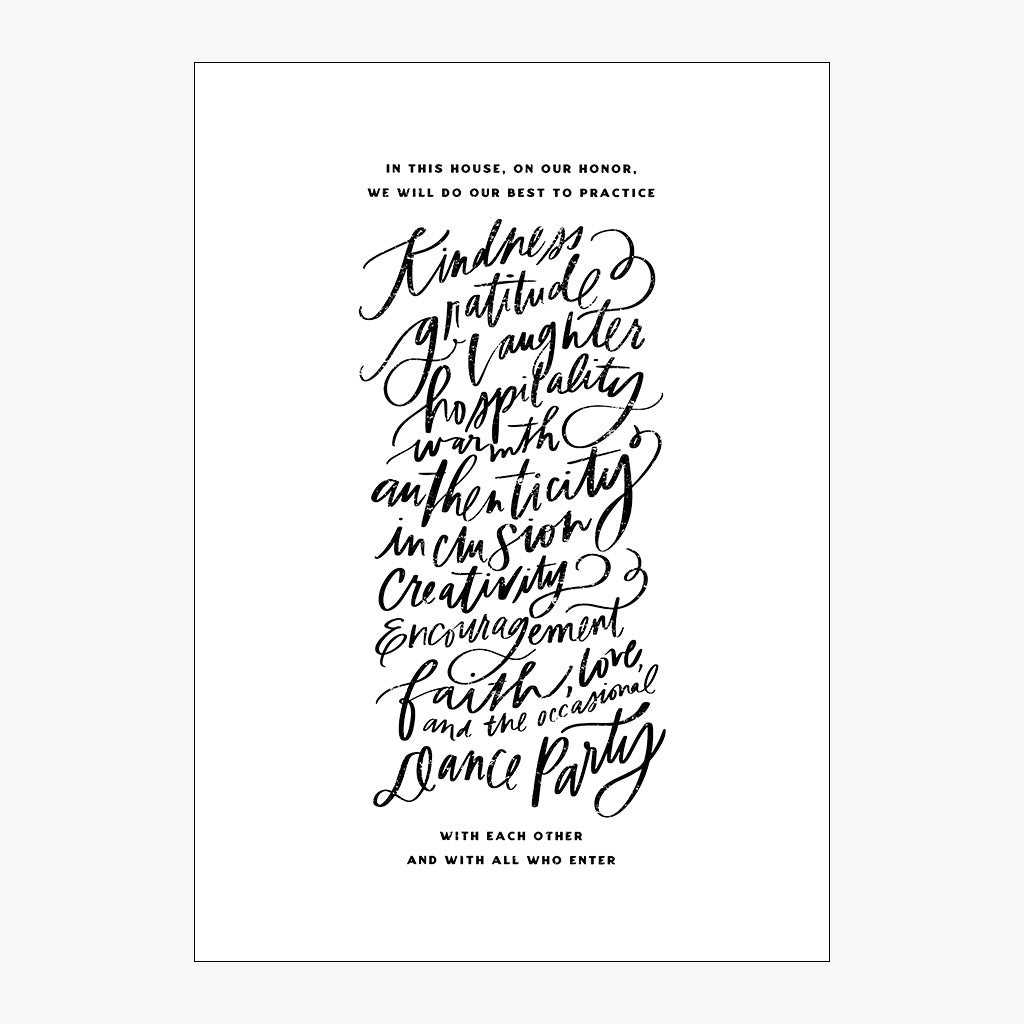 IN THIS HOUSE, ON OUR HONOR,
WE WILL DO OUR BEST TO PRACTICE
Kindness
gratitude
Laughter
hospitality
warmth
authenticity
inclusion
Creativity
Encouragement
faith, love,
and the occasional
Dance Party
WITH EACH OTHER
AND WITH ALL WHO ENTER